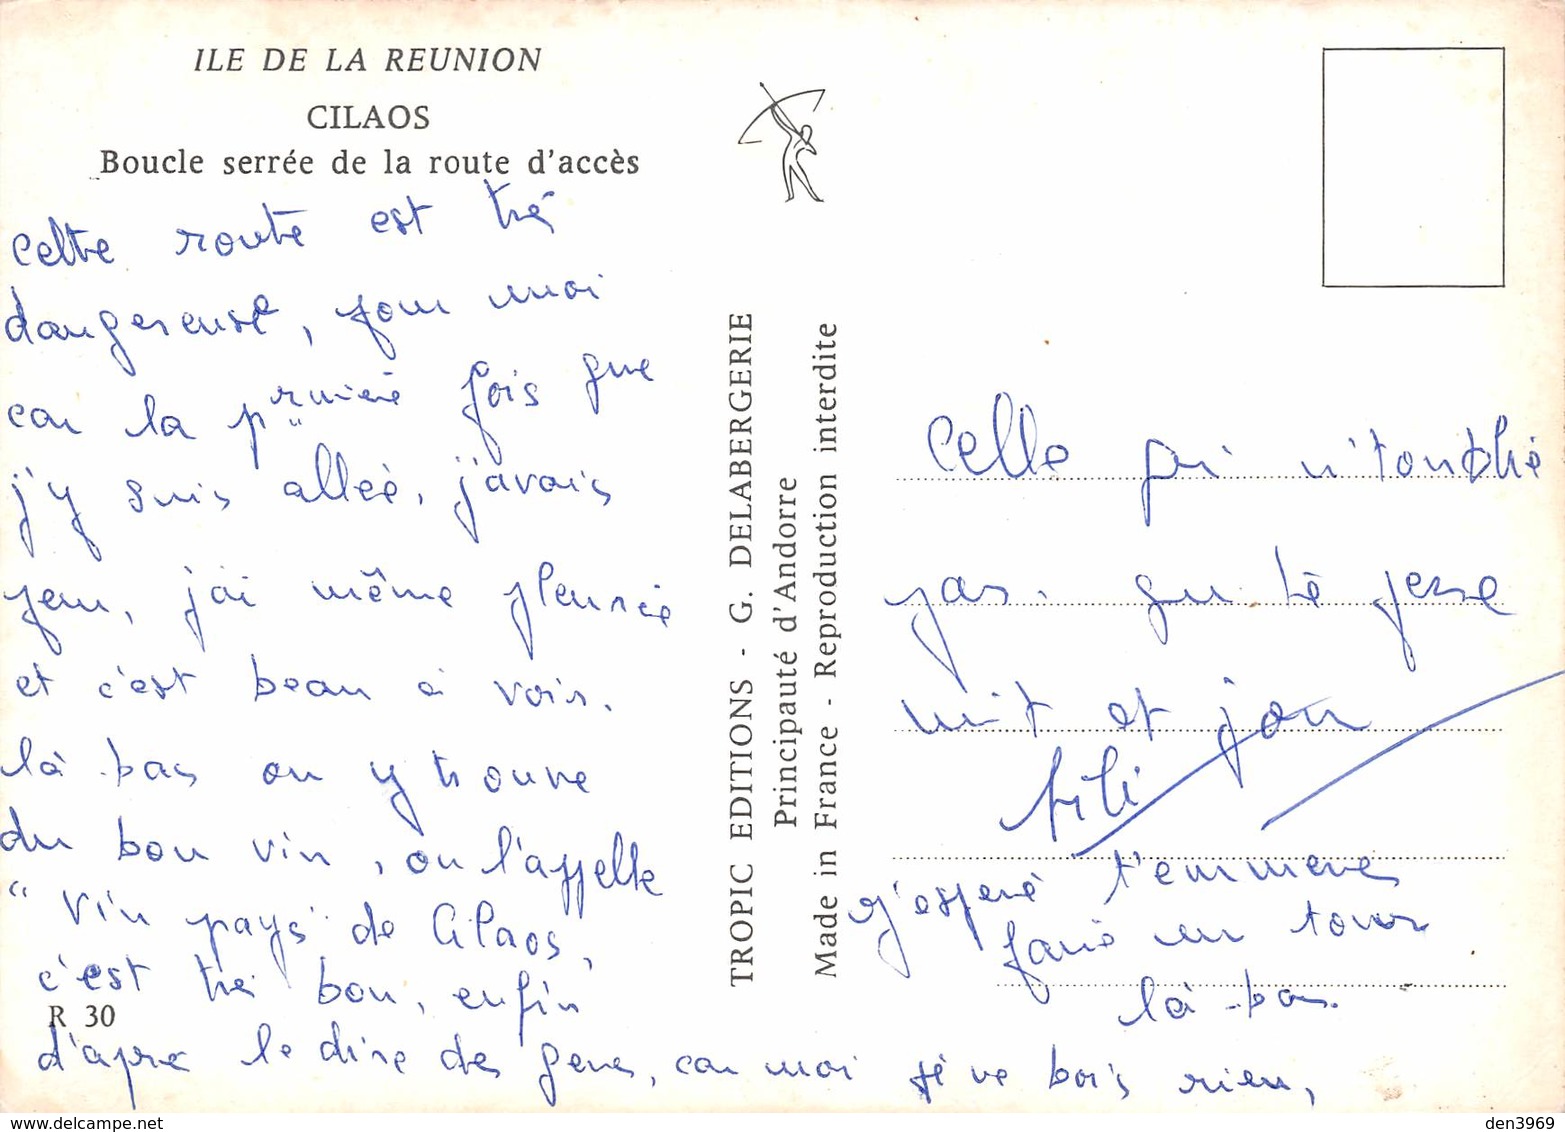 ILE DE LA REUNION
CILAOS
Boucle serrée de la route d'accès
Cette route est trè
dangereuse, pour moi
car la prmière fois que
j'y suis allée, j'avais
peur, j'ai même pleurée
et c'est beau à voir.
là-bas on y trouve
du bon vin, on l'appelle
"Vin pays" de Cilaos,
c'est trè bon, enfin
R 30
d'apre le dire des gens, car moi je ne bois rien,
TROPIC EDITIONS - G. DELABERGERIE
Principauté d'Andorre
Made in France - Reproduction interdite
Celle qui n't'oublie
pas. qui te pense
nuit et jour
j'espere t'emmener
faire un tour
là-bas.
den3969
www.delcampe.net